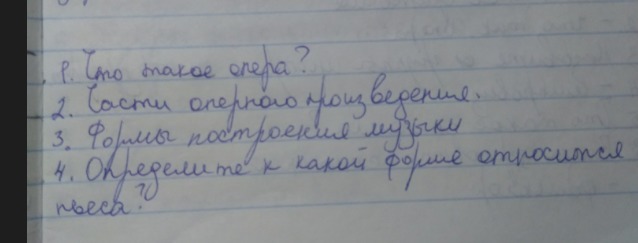 1. Что такое опера?
2. Части оперного произведения.
3. Формы построения музыки
4. Определите к какой форме относится
пьеса?